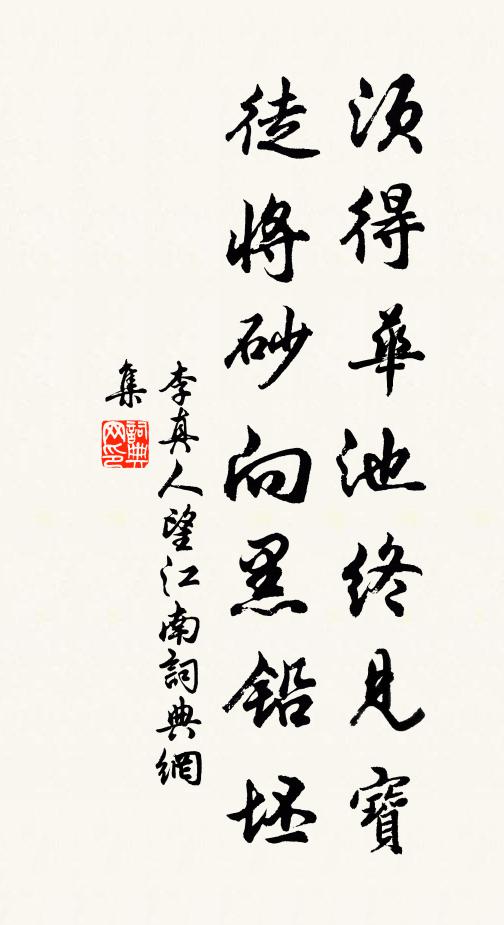 須得華池終見寶
徒將砂向黑鉛坯
李真人望江南詞典網
集
詞典
网印